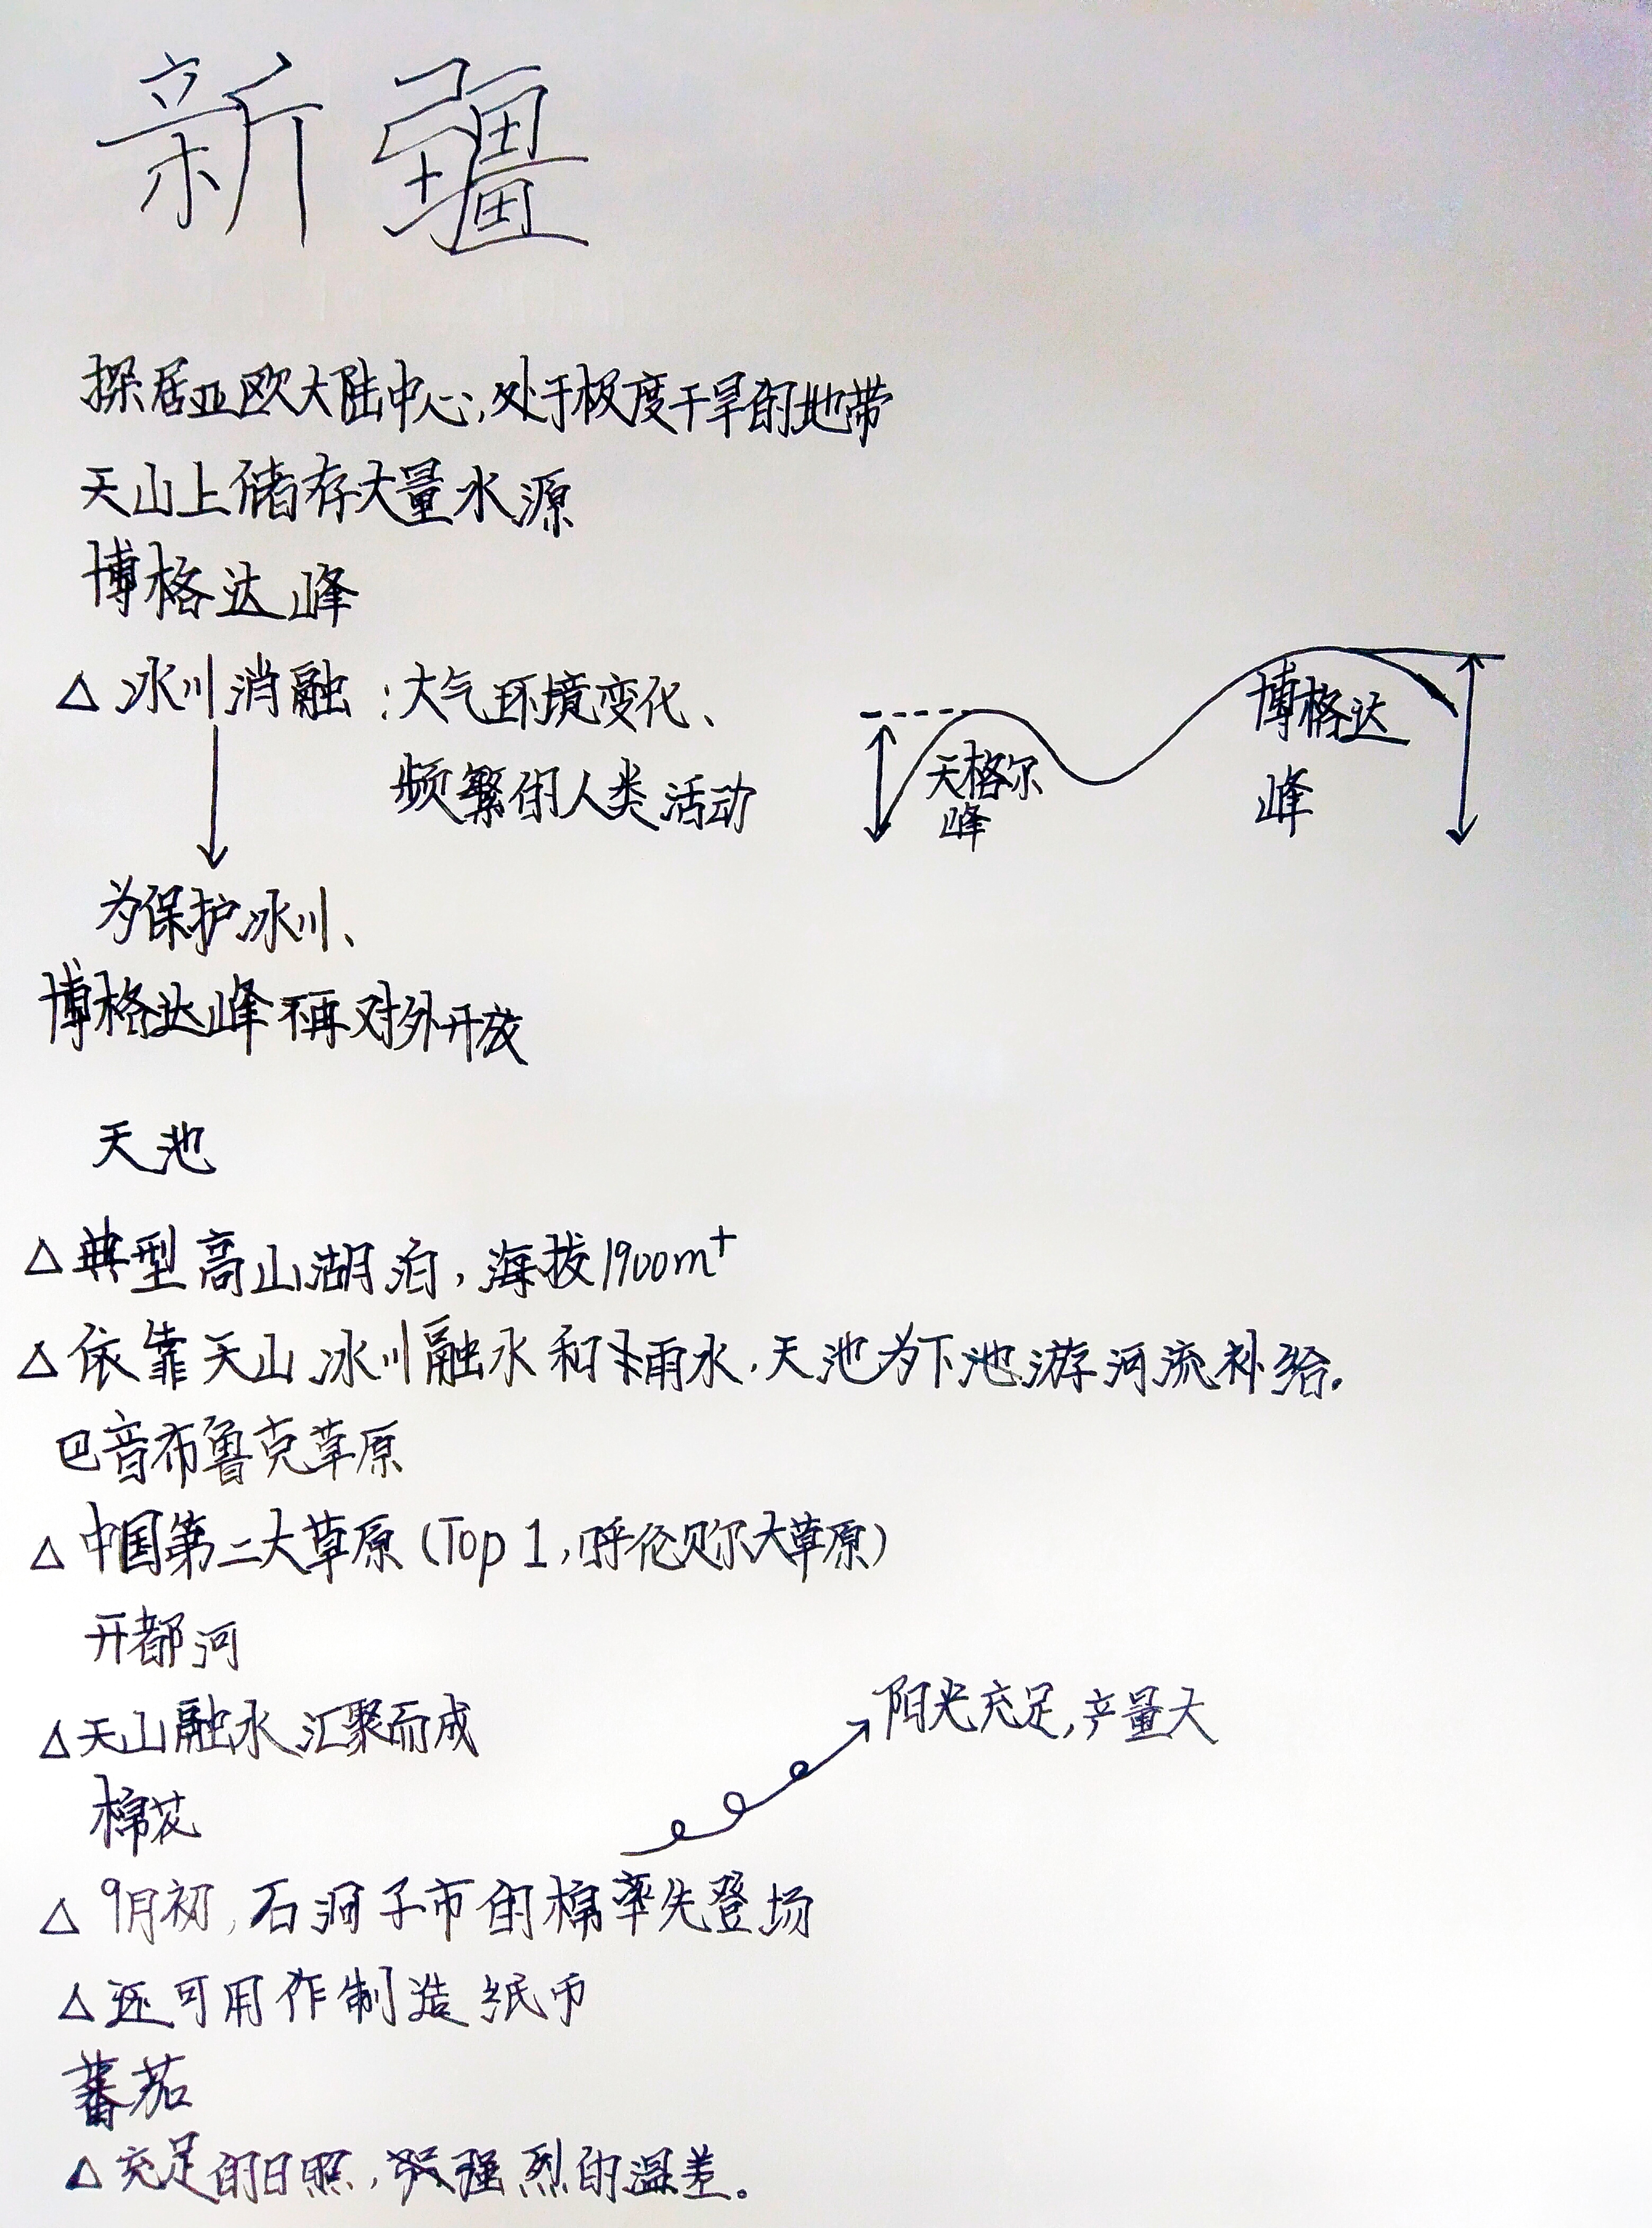 新疆
深居亚欧大陆中心,处于极度干旱的地带
天山上储存大量水源
博格达峰
△ 冰川消融:大气环境变化、
频繁的人类活动
天格尔
峰
博格达
峰
为保护冰川、
博格达峰不再对外开放
天池
△典型高山湖泊,海拔1900m⁺
△依靠天山冰川融水和雨水,天池为下池游河流补给.
巴音布鲁克草原
△中国第二大草原(Top 1,呼伦贝尔大草原)
开都河
△天山融水汇聚而成
阳光充足,产量大
棉花
△ 9月初,石河子市的棉率先登场
△还可用作制造纸币
蕃茄
△充足的日照,强烈的温差。